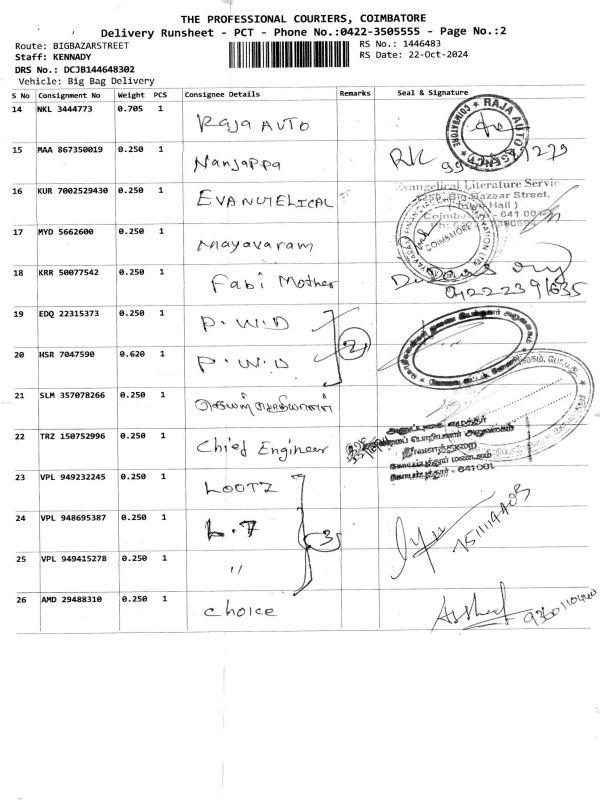 THE PROFESSIONAL COURIERS, COIMBATORE
Delivery Runsheet - PCT - Phone No.:0422-3505555 - Page No.:2
Route: BIGBAZARSTREET
RS No.: 1446483
Staff: KENNADY
RS Date: 22-Oct-2024
DRS No.: DCJB144648302
Vehicle: Big Bag Delivery
S No Consignment No Weight PCS Consignee Details Remarks Seal & Signature
14 NKL 3444773 0.705 1 Raja AUTO
RAJA AUTO AGENCY COIMBATORE
15 MAA 867350019 0.250 1 Nanjappa RK
16 KUR 7002529430 0.250 1 EVANUTELICAL
Evangelical Literature Servic
Big Bazaar Street,
(Town Hall)
Coimbatore - 641 001
17 MYD 5662600 0.250 1 Mayavaram
COIMBATORE
18 KRR 50077542 0.250 1 Fabi Mother
19 EDQ 22315373 0.250 1 P.W.D
20 HSR 7047590 0.620 1 P.W.D
2
21 SLM 357078266 0.250 1
22 TRZ 150752996 0.250 1 Chief Engineer
அனுப்புகை எழுத்தர்
பொறியாளர் அலுவலகம்
நீர்வளத்துறை
கோயம்புத்தூர் மண்டலம்
கோயம்புத்தூர் - 641001
23 VPL 949232245 0.250 1 LOOTZ
24 VPL 948695387 0.250 1 L.7
3
25 VPL 949415278 0.250 1 "
26 AMD 29488310 0.250 1 choice